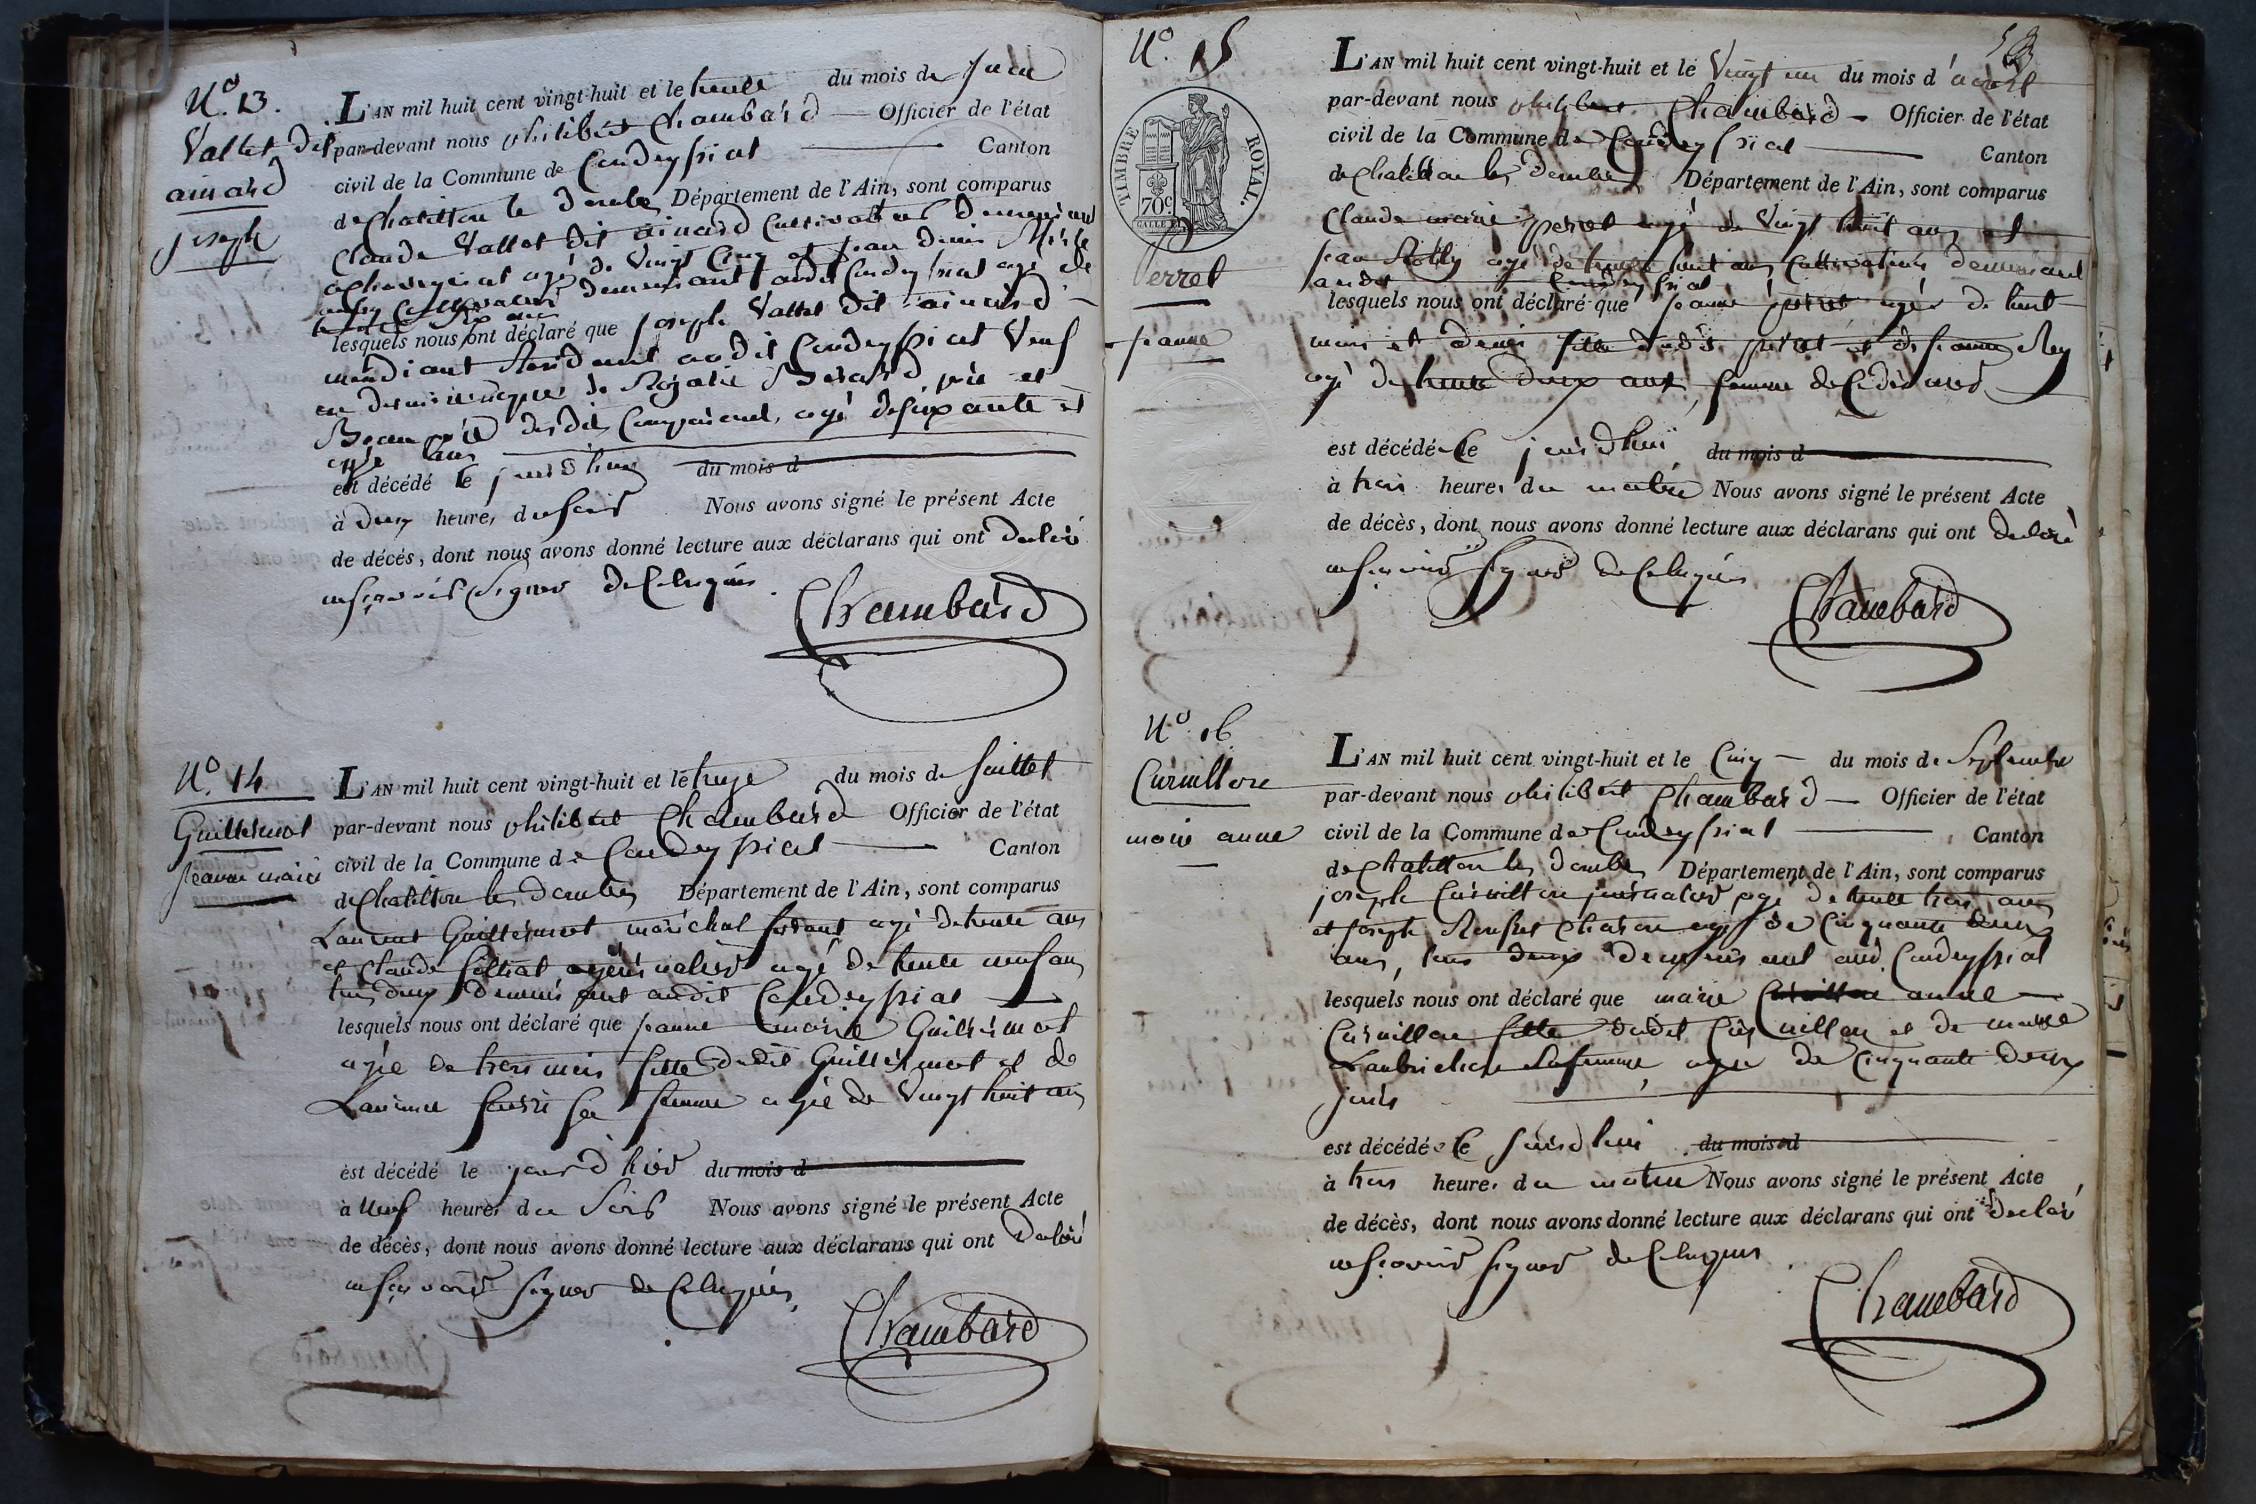 N.º 13.
Vallet dit
ainard
joseph
L'AN mil huit cent vingt-huit et le trente du mois de juin
par-devant nous philibert Chambard Officier de l'état
civil de la Commune de Condeyssiat Canton
de Chatillon les dombes Département de l'Ain, sont comparus
Claude Vallet dit ainard Cultivateur demeurant
agé de Vingt Cinq et jean denis
aussy Cultivateur demeurant audit Condeyssiat agé de
trente
lesquels nous ont déclaré que joseph Vallet dit ainard
mendiant Residant audit Condeyssiat Veuf
en de Rozalie Berard, père et
Beaupère desdits Comparants, agé desoixante et
ans
est décédé le jourdhuy du mois d
à deux heures du soir Nous avons signé le présent Acte
de décès, dont nous avons donné lecture aux déclarans qui ont declaré
nesçavoir signer de Ce requis.
Chambard
N.º 14
Guillermot
jeanne marie
L'AN mil huit cent vingt-huit et le treize du mois de juillet
par-devant nous philibert Chambard Officier de l'état
civil de la Commune de Condeyssiat Canton
de Chatillon les dombes Département de l'Ain, sont comparus
Laurent Guillermot maréchal ferrant agé detrente ans
et Claude journalier agé de trente neuf ans
tous deux demeurant audit Condeyssiat
lesquels nous ont déclaré que jeanne marie Guillermot
agée de trois mois fille dudit Guillermot et de
sa femme agée de Vingt huit ans
est décédé le jour d'hier du mois d
à neuf heures du Soir Nous avons signé le présent Acte
de décès, dont nous avons donné lecture aux déclarans qui ont Declaré
nesçavoir signer de Ce requis,
Chambard
N.º 15
TIMBRE ROYAL.
70c
Perret
jeanne
L'AN mil huit cent vingt-huit et le Vingt un du mois d'aoust
par-devant nous philibert Chambard Officier de l'état
civil de la Commune de Condeyssiat Canton
de Chatillon les dombes Département de l'Ain, sont comparus
Claude marie perret agé de Vingt huit ans et
jean agé de trente huit ans Cultivateurs demeurant
audit Condeyssiat
lesquels nous ont déclaré que jeanne perret agée de huit
mois et demi fille dudit perret et de jeanne Rey
agé de trente deux ans, femme de Ce dernier
est décédée le jourdhui du mois d
à trois heures du matin Nous avons signé le présent Acte
de décès, dont nous avons donné lecture aux déclarans qui ont declaré
nesçavoir signer de Ce requis
Chambard
N.º 16
Curvillon
marie anne
L'AN mil huit cent vingt-huit et le Cinq du mois de Septembre
par-devant nous philibert Chambard Officier de l'état
civil de la Commune de Condeyssiat Canton
de Chatillon les dombes Département de l'Ain, sont comparus
joseph Curvillon journalier agé de trente trois ans
et joseph Charon agé de Cinquante deux
ans, tous deux demeurant aud. Condeyssiat
lesquels nous ont déclaré que marie anne
Curvillon fille dudit Curvillon et de marie
sa femme, agée de Cinquante deux
jours
est décédée le jourdhui du mois d
à trois heures du matin Nous avons signé le présent Acte
de décès, dont nous avons donné lecture aux déclarans qui ont declaré
nesçavoir signer de Ce requis
Chambard